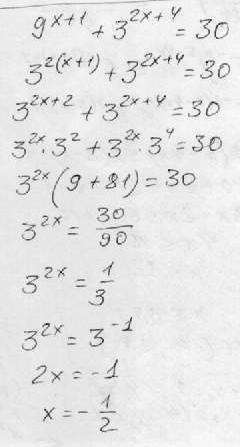 9^{x+1} + 3^{2x+4} = 30
3^{2(x+1)} + 3^{2x+4} = 30
3^{2x+2} + 3^{2x+4} = 30
3^{2x} · 3^2 + 3^{2x} · 3^4 = 30
3^{2x} (9 + 81) = 30
3^{2x} = \frac{30}{90}
3^{2x} = \frac{1}{3}
3^{2x} = 3^{-1}
2x = -1
x = -\frac{1}{2}